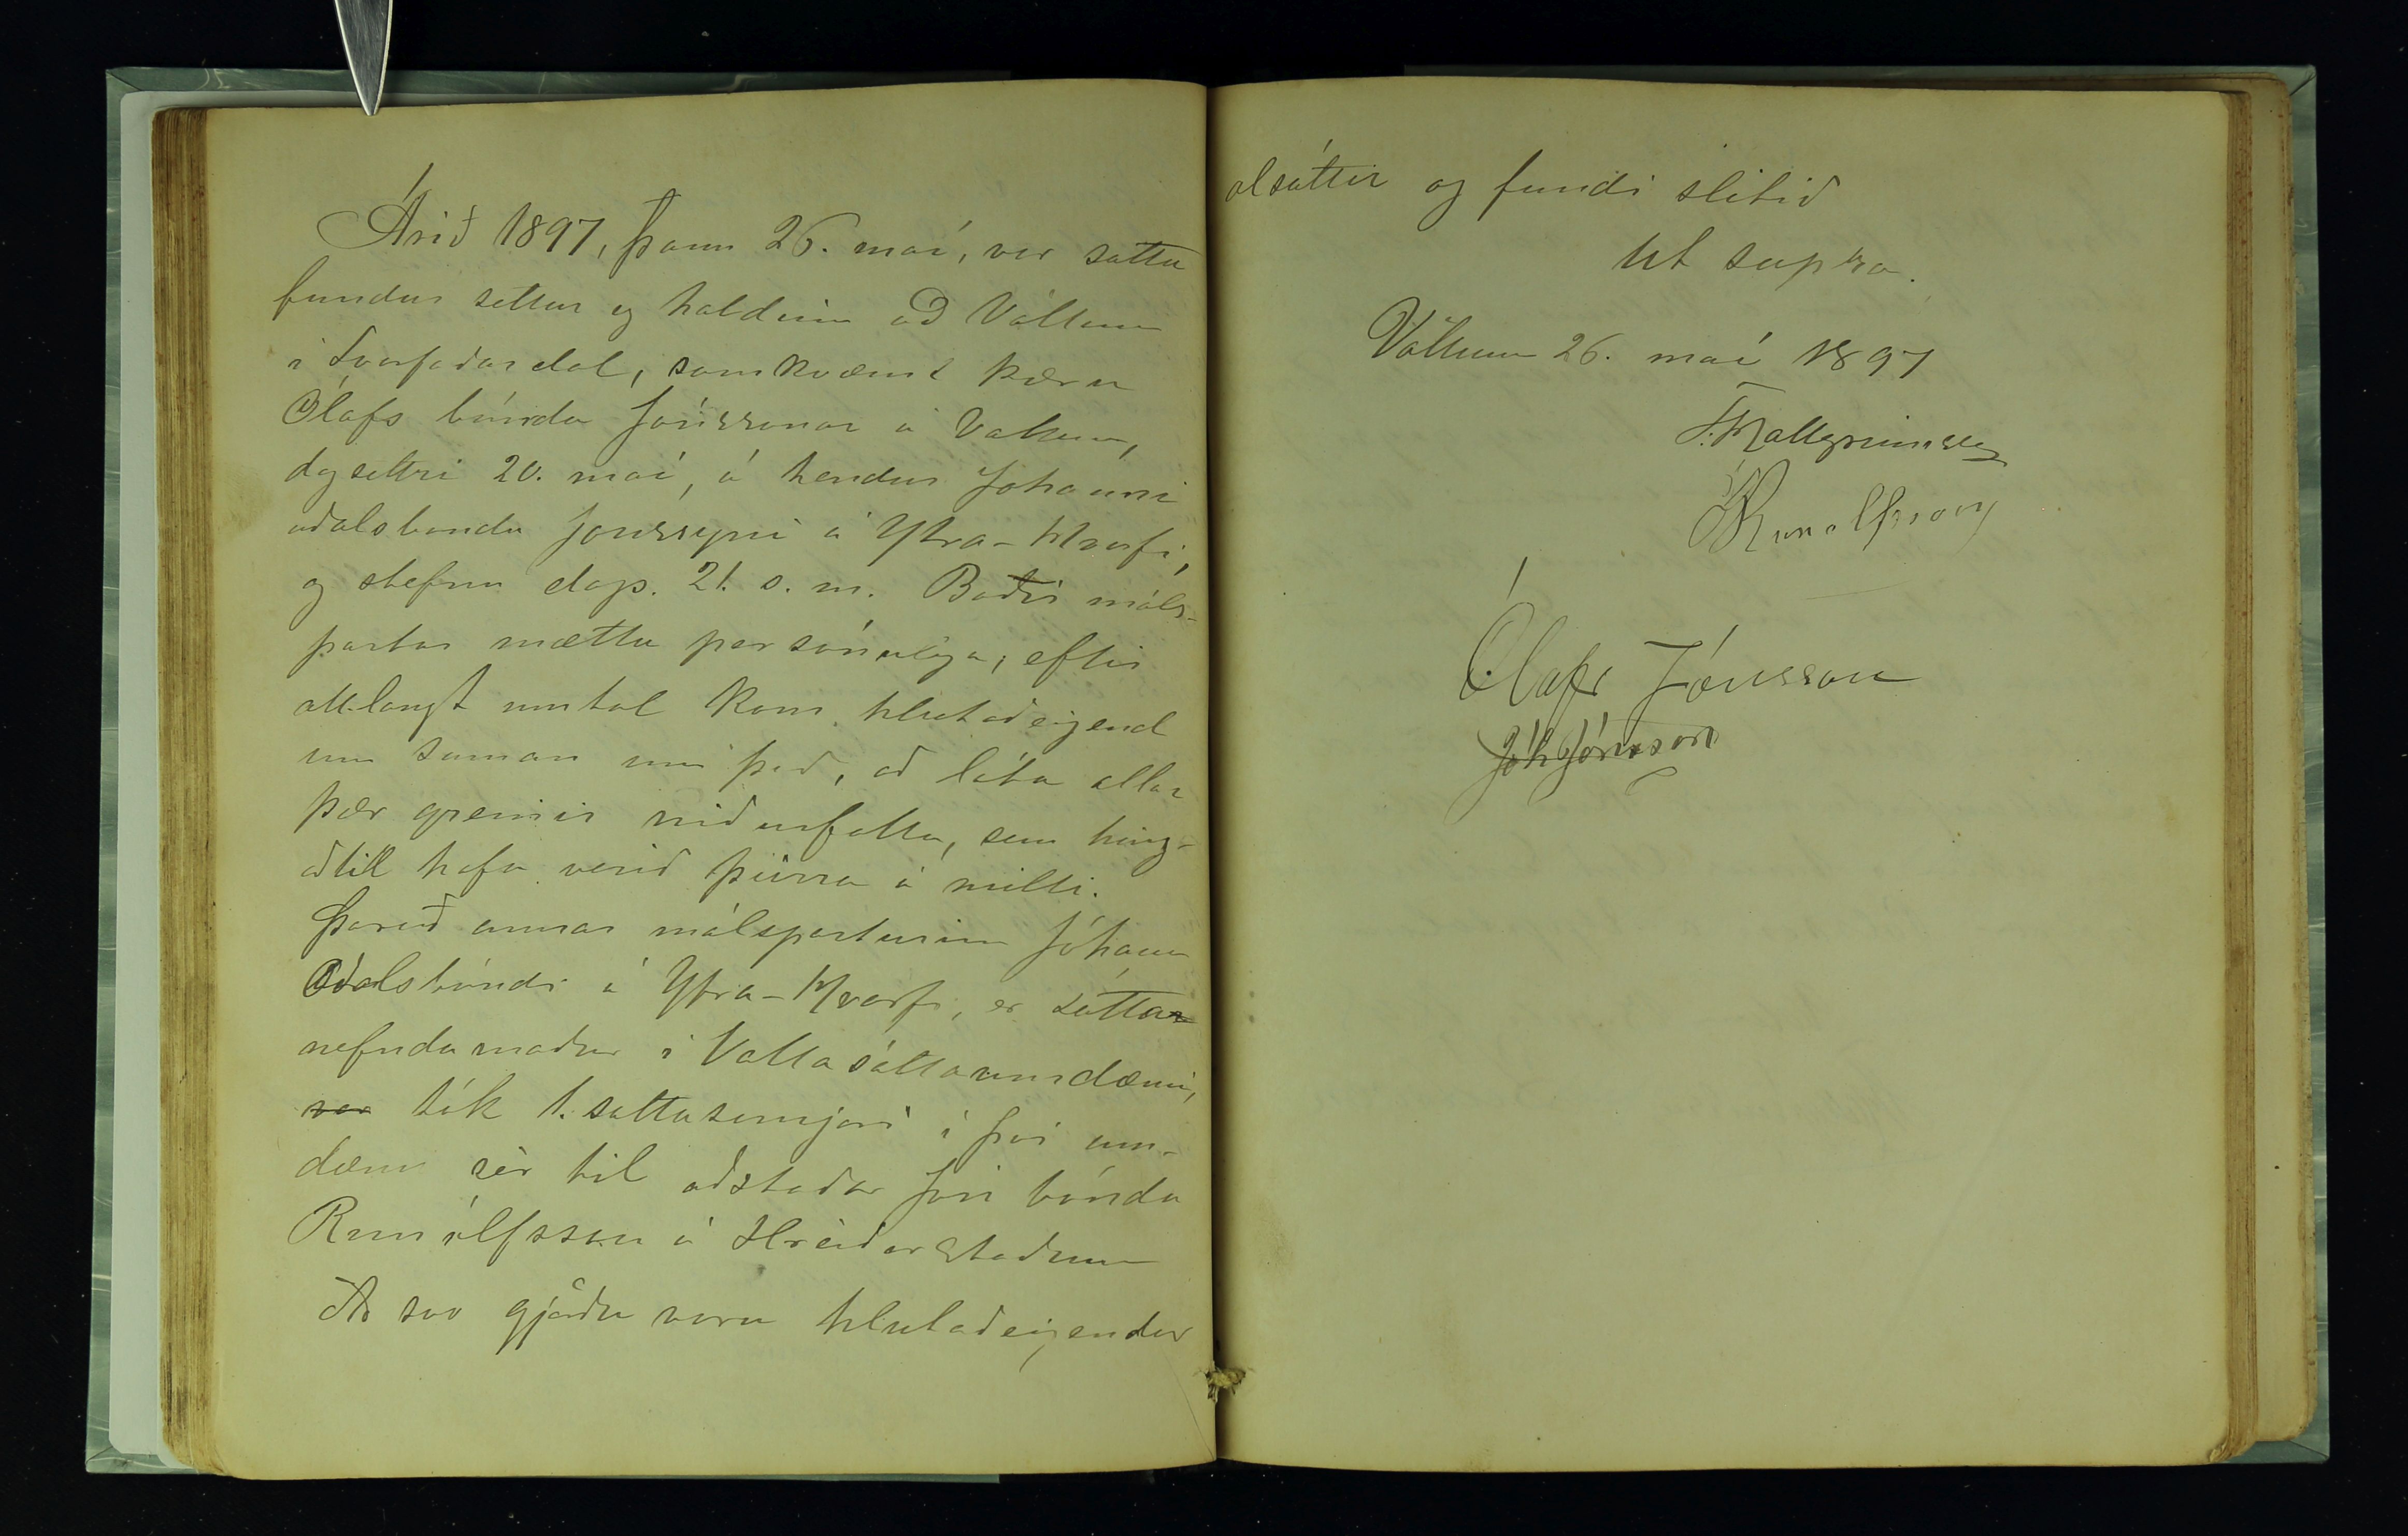 Árið 1897, þann 26. maí, var sátta
fundur settur og haldinn að Völlum
i Svarfaðardal, samkvæmt kæru
Ólafs bónda Jónssonar á Völlum,
dagsettri 20. maí, á hendur Jóhanni
óðalsbónda Jónssyni á Ytra-Hvarfi,
og stefnu dags. 21. s. m. Báðir máls-
partar mættu persónulega; eftir
alllangt umtal kom hlutaðeigend
um saman um það, að láta allar
þær greinir niðurfalla, sem hing-
aðtil hafa verið þeirra á milli.
Þareð annar málsparturinn Jóhann
Óðalsbóndi á Ytra-Hvarfi, er sáttar
nefndamaður í Valla sáttaumdæmi,
var tók 1. sáttasemjari í því um-
dæmi sér til aðstoðar Jón bónda
Runólfsson á Hreiðarstaðum
Að svo gjörðu voru hlutaðeigendur
alsáttir og fundi slitið
Ut supra.
Völlum 26. maí 1897
T. Hallgrimsson
J Runolfsson
Ólafr Jónsson
Jóh Jónsson